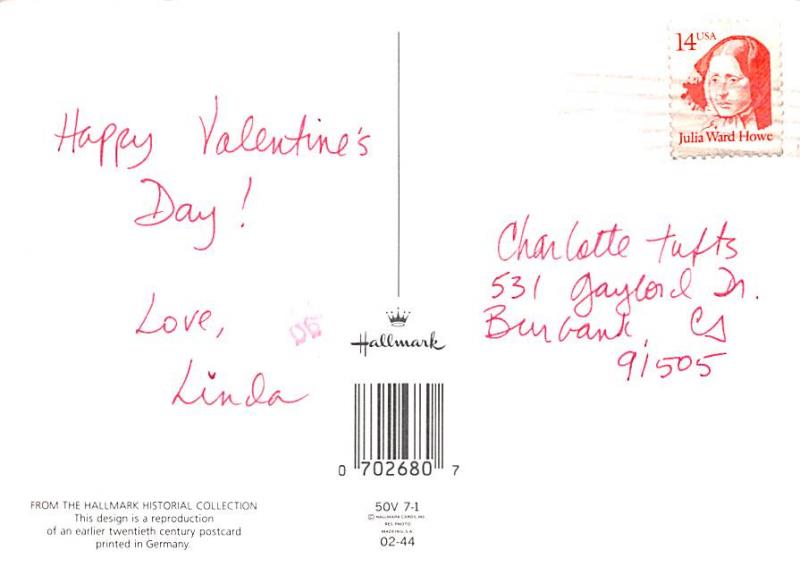 Happy Valentine's
Day!
Love,
Linda
FROM THE HALLMARK HISTORIAL COLLECTION
This design is a reproduction
of an earlier twentieth century postcard
printed in Germany
Hallmark
0 702680 7
50V 7-1
© HALLMARK CARDS, INC.
02-44
14 USA
Julia Ward Howe
Charlotte Tufts
531 Gaylord Dr.
Burbank, CA
91505